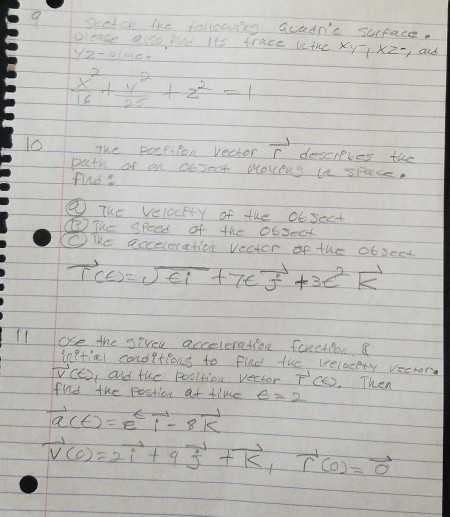 9 Sketch the following Quadric Surface.
please also find its trace in the xy-, xz-, and
yz-plane.
x²/16 + y²/25 + z² = 1
10 The position vector r⃗ describes the
path of an object moving in space.
Find:
ⓐ The velocity of the object
ⓑ The speed of the object
ⓒ The acceleration vector of the object
r⃗(t) = √t i⃗ + 7t j⃗ + 3t² k⃗
11 Use the given acceleration function &
initial conditions to find the velocity vector.
v⃗(t), and the position vector r⃗(t). Then
find the postion at time t = 2
a⃗(t) = e^t i⃗ - 8k⃗
v⃗(0) = 2i⃗ + 9j⃗ + k⃗, r⃗(0) = 0⃗